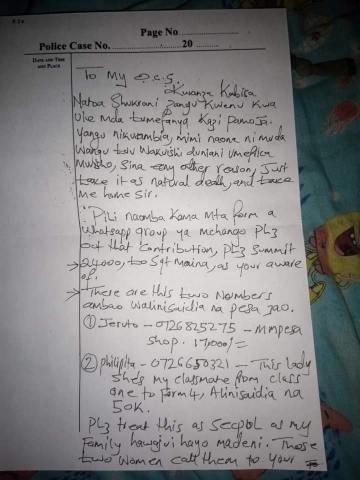 Page No
Police Case No. 20
DATE AND TIME
AND PLACE
To My O.C.S.
Kwanza Kabisa
Natoa Shukrani zangu Kwenu Kwa
Ule mda tumefanya Kazi Pamoja.
Yangu nikuambia, mimi naona ni muda
Wangu tu Wakuishi duniani Umefika
Mwisho, Sina any other reason, Just
take it as natural death, and take
me home Sir.
Pili naomba Kama Mta form a
Whatsapp group ya mchango Pls
Out that Contribution, Pls Summit
→ 24000, to Sgt Maina, as your aware
of.
→ There are this two Numbers
ambao Walinisaidia na pesa zao.
① Jeruto - 0726825275 - Mmpesa
Shop. 17,000/=
② Philiplita - 0726650321 - This lady
She's my classmate from class
one to form 4, Alinisaidia na
50K.
Pls treat this as Secpol as my
Family hawajui hayo madeni. Those
two Women call them to Your